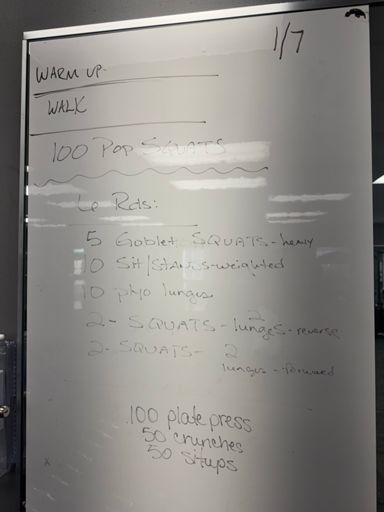 1/7
WARM UP-
WALK
100 POP SQUATS
6 Rds:
5 Goblet SQUATS - heavy
10 Sit/Stands-weighted
10 plyo lunges
2 - SQUATS - 2 lunges - reverse
2 - SQUATS - 2
lunges - forward
100 plate press
50 crunches
50 situps